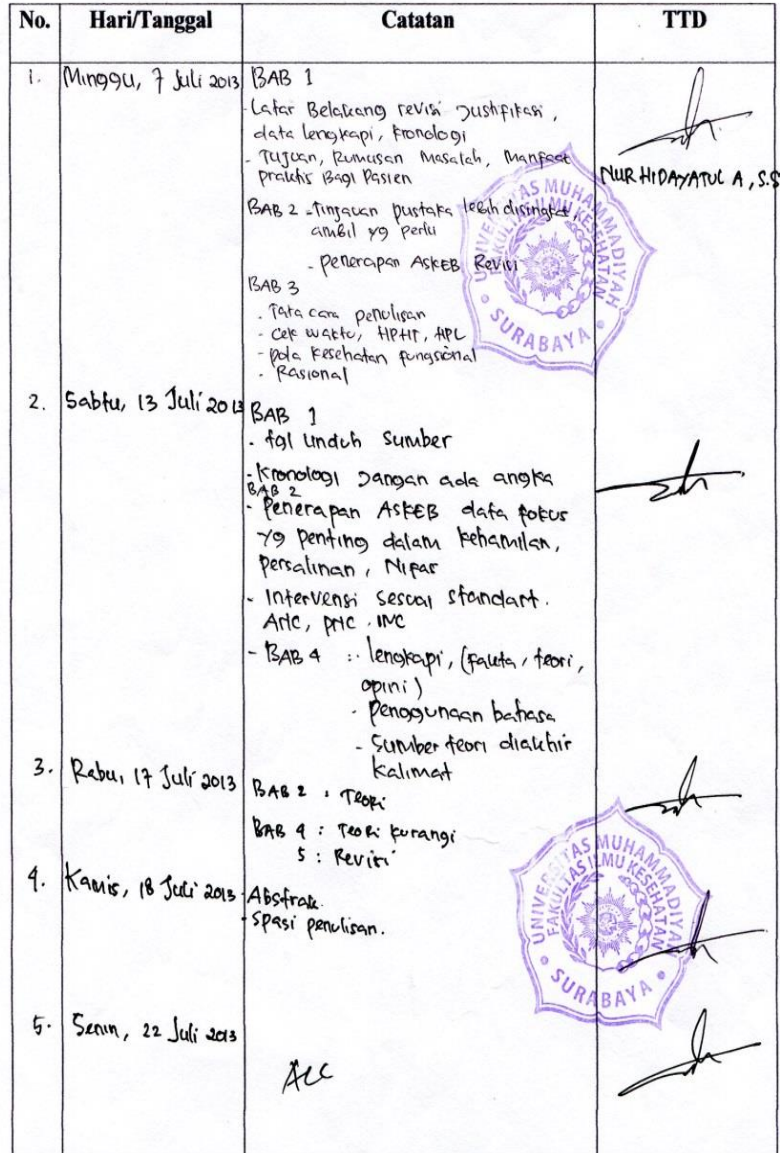 No. Hari/Tanggal Catatan TTD
1. Minggu, 7 Juli 2013 BAB 1
- Latar Belakang revisi Justifikasi,
data lengkapi, kronologi
- Tujuan, Rumusan Masalah, Manfaat
praktis Bagi Pasien
NUR HIDAYATUL A, S.S
BAB 2 - Tinjauan pustaka lebih disingkat,
ambil yg perlu
- penerapan ASKEB Revisi
BAB 3
- Tata cara penulisan
- cek waktu, HPHT, HPL
- pola kesehatan fungsional
- Rasional
UNIVERSITAS MUHAMMADIYAH
FAKULTAS ILMU KESEHATAN
SURABAYA
2. Sabtu, 13 Juli 2013 BAB 1
- tgl unduh sumber
- Kronologi Jangan ada angka
BAB 2
- Penerapan ASKEB data fokus
yg penting dalam kehamilan,
persalinan, Nifas
- Intervensi sesuai standart.
ANC, PNC, INC
- BAB 4 : - lengkapi, (fakta, teori,
opini)
- Penggunaan bahasa
- Sumber teori diakhir
kalimat
3. Rabu, 17 Juli 2013
BAB 2 : Teori
BAB 4 : Teori kurangi
5 : Revisi
4. Kamis, 18 Juli 2013 - Abstrak.
- Spasi penulisan.
UNIVERSITAS MUHAMMADIYAH
FAKULTAS ILMU KESEHATAN
SURABAYA
5. Senin, 22 Juli 2013
ACC